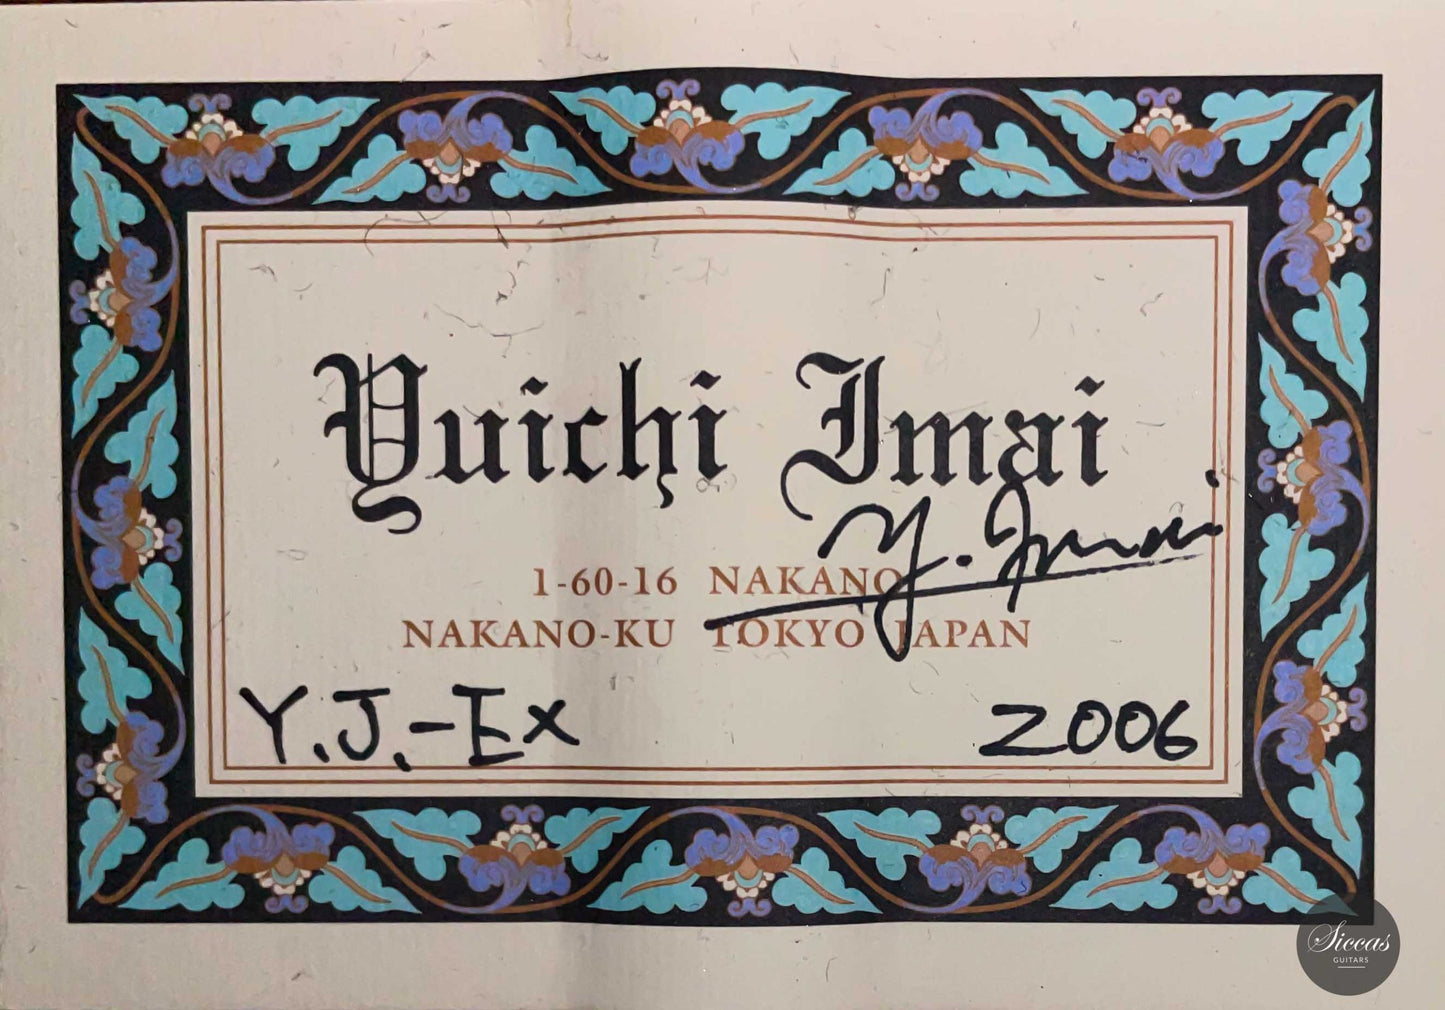 Yuichi Imai
Y. Imai
1-60-16 NAKANO
NAKANO-KU TOKYO JAPAN
Y.J.-Ex 2006
Siccas
GUITARS